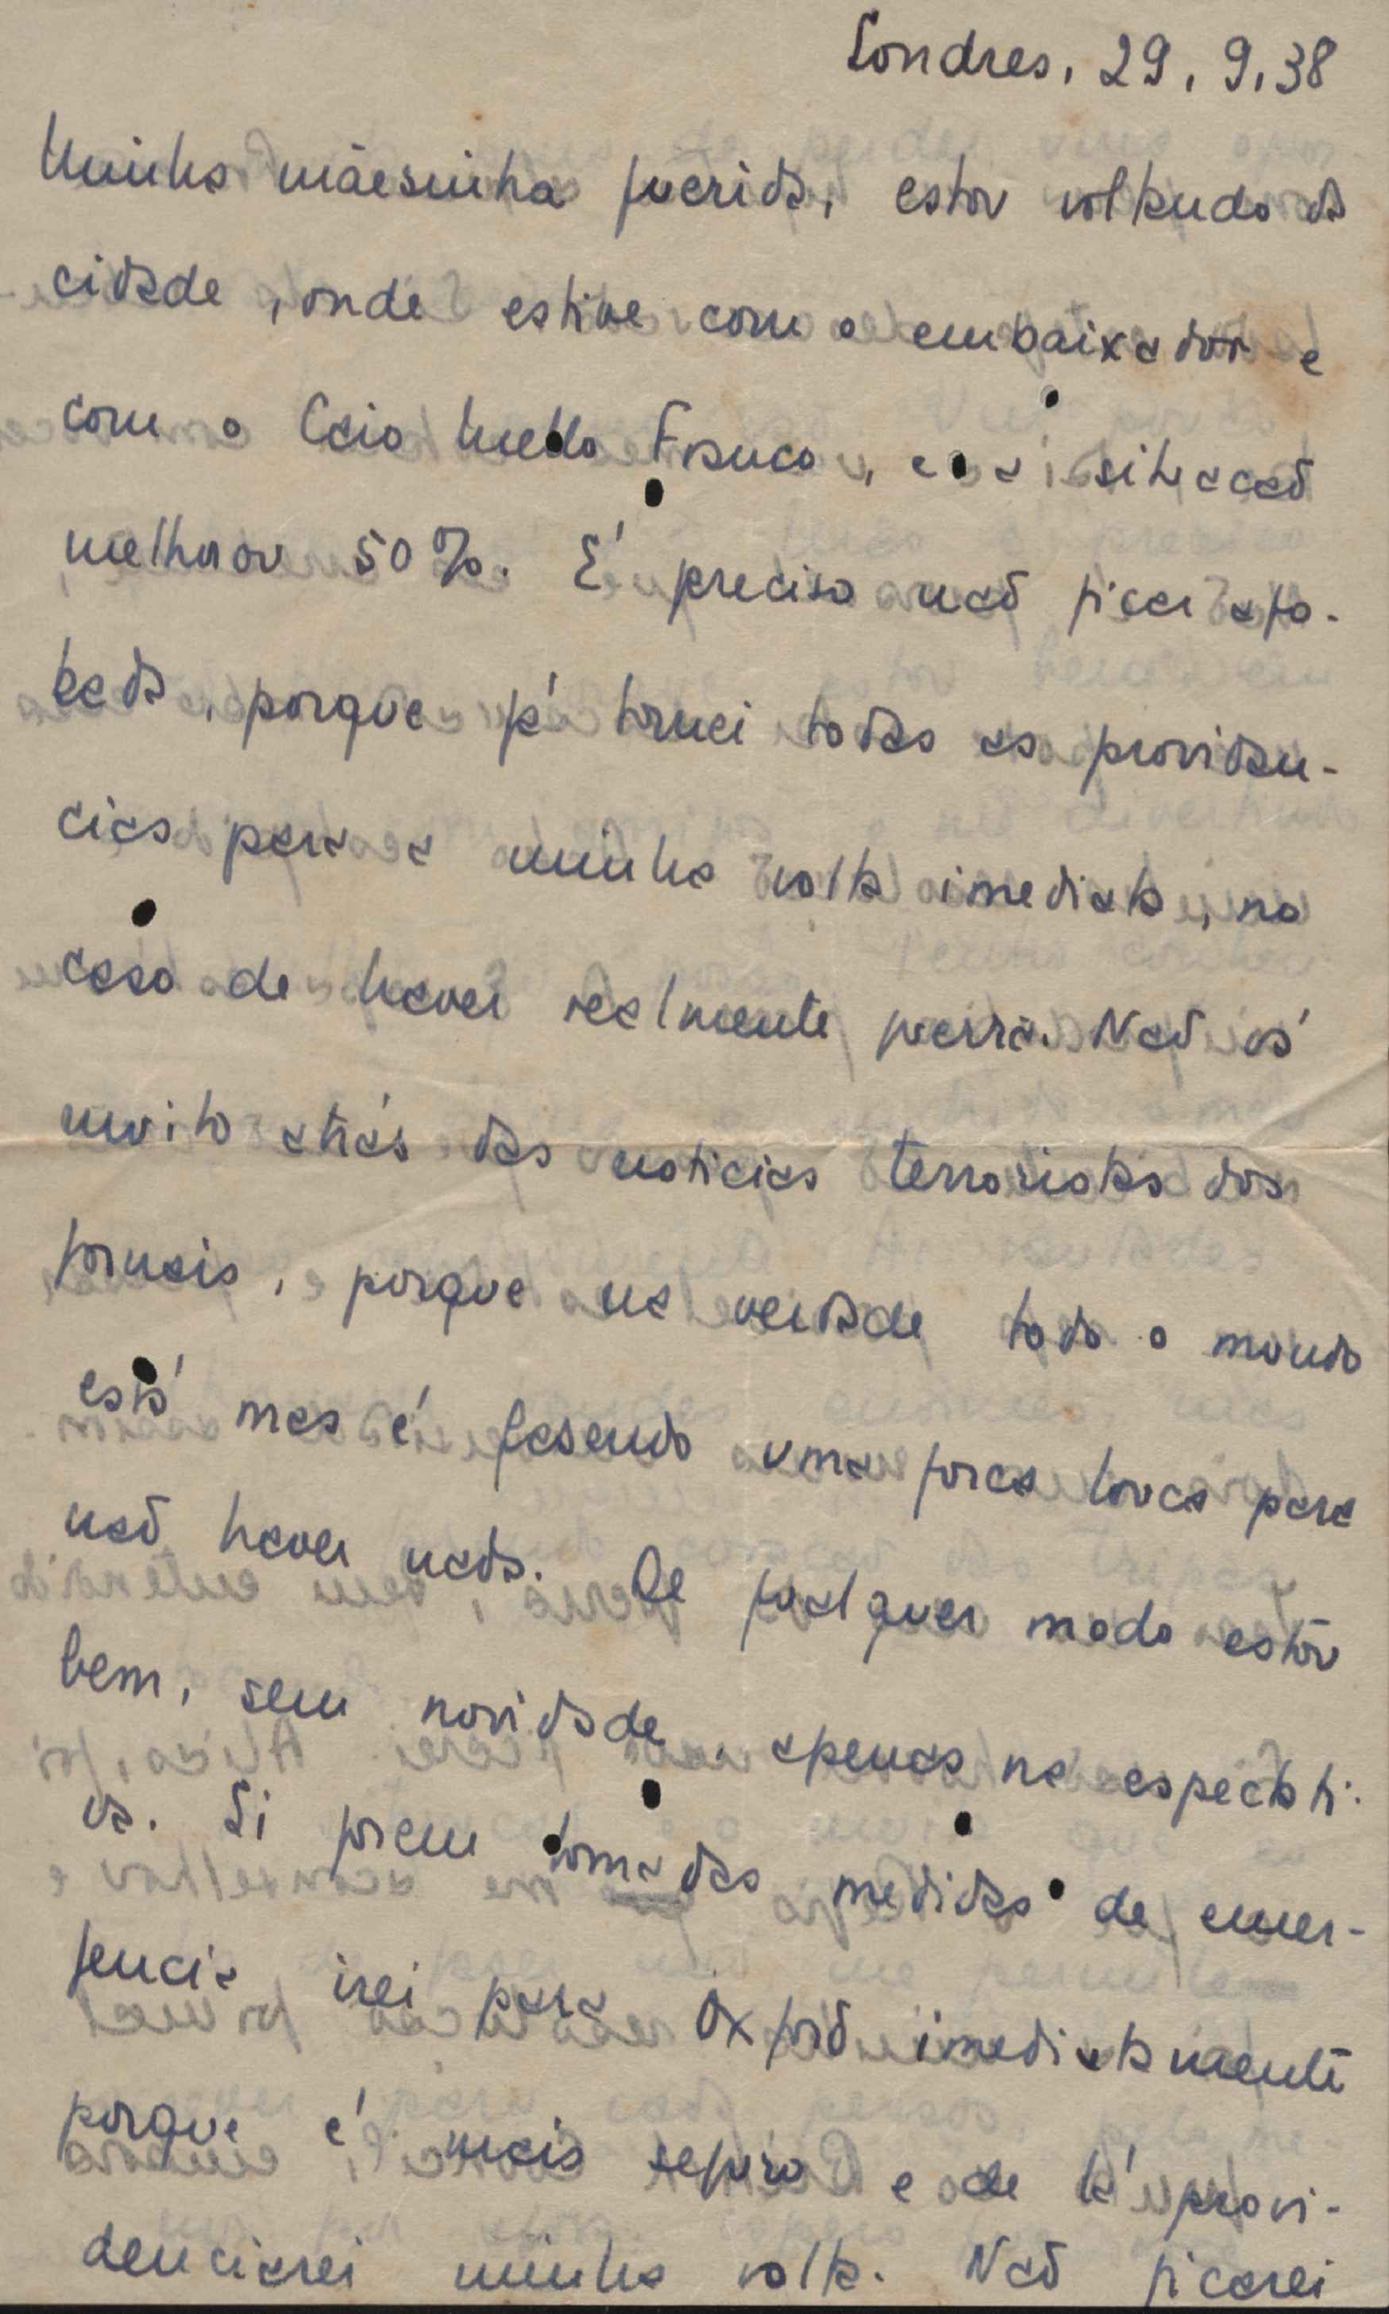 Londres, 29, 9, 38
Minha mãesinha querida, estou voltando da
cidade, onde estive com o embaixador e
com o Caio Mello Franco, e a situacaõ
melhorou 50%. É preciso naõ ficar afo-
bada, porque já tomei todas as providan-
cias para a minha volta imediata, no
caso de haver realmente guerra. Naõ vá
muito atrás das noticias terroristas dos
jornais, porque na verdade todo o mundo
está mas é fasendo uma forca louca para
naõ haver nada. De qualquer modo estou
bem, sem novidade, apenas na espectati-
va. Si forem tomadas medidas de emer-
gencia irei para Oxford imediatamente
porque é mais seguro e de lá provi-
denciarei minha volta. Naõ ficarei